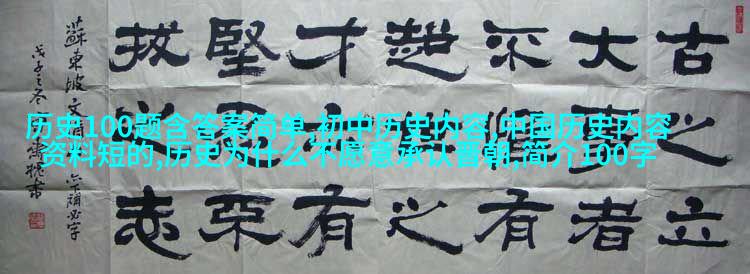 历史100题含答案简单,初中历史内容,中国历史内容
资料短的,历史为什么不愿意承认晋朝,简介100字
古之立
大事者
不惟有
超世之
才亦有
堅忍不
拔之志
蘇東坡文
下漏必字
戊子之冬
書